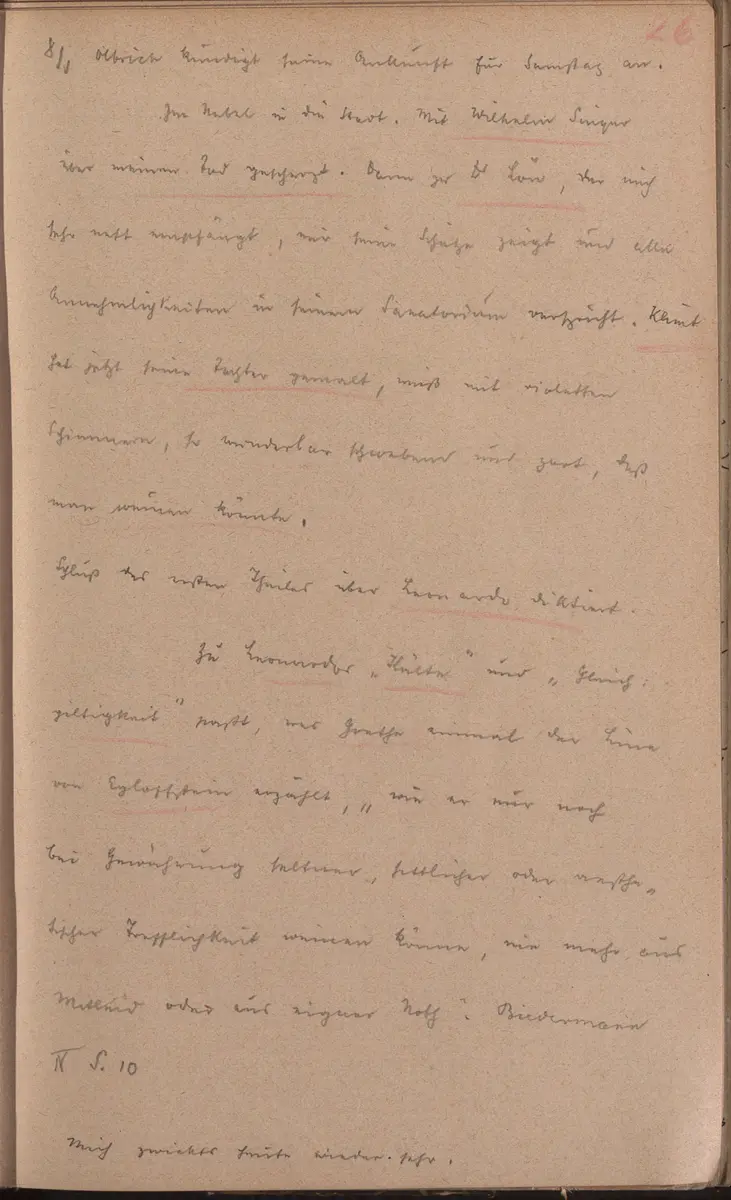 26
8/1 Olbrich kündigt seine Ankunft für Samstag an.
Im Nebel in die Stadt. Mit Wilhelm Singer
über meinen Tod gescherzt. Dann zu Dr Löw, der mich
sehr nett empfängt, mir seine Schätze zeigt und alle
Annehmlichkeiten in seinem Sanatorium verspricht. Klimt
hat jetzt seine Tochter gemalt, weiß mit violetten
Schimmern, so wunderbar schwebend und zart, daß
man weinen könnte.
Schluß des ersten Theiles über Leonardo diktiert.
Zu Leonardos „Kälte" und „Gleich:
giltigkeit" paßt, was Goethe einmal der Line
von Egloffstein erzählt, „wie er nur noch
bei Gewahrung seltner, sittlicher oder aesthe„
tischer Trefflichkeit weinen könne, nie mehr aus
Mitleid oder aus eigner Noth". Biedermann
IV S. 10
Mich zwickts heute wieder sehr.